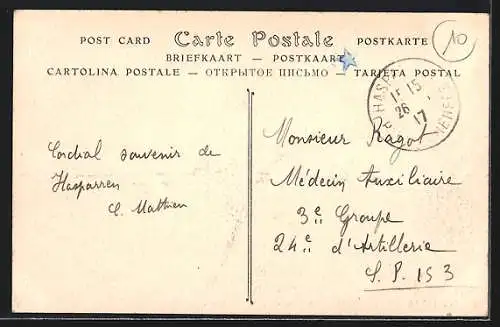 POST CARD Carte Postale POSTKARTE
BRIEFKAART — POSTKAART
CARTOLINA POSTALE — ОТКРЫТОЕ ПИСЬМО — TARJETA POSTAL
10
HASP
15
26
17
Cordial souvenir de
Hasparren
C. Mathieu
Monsieur Ragot
Médecin Auxiliaire
3e Groupe
24e d'Artillerie
S. P. 153